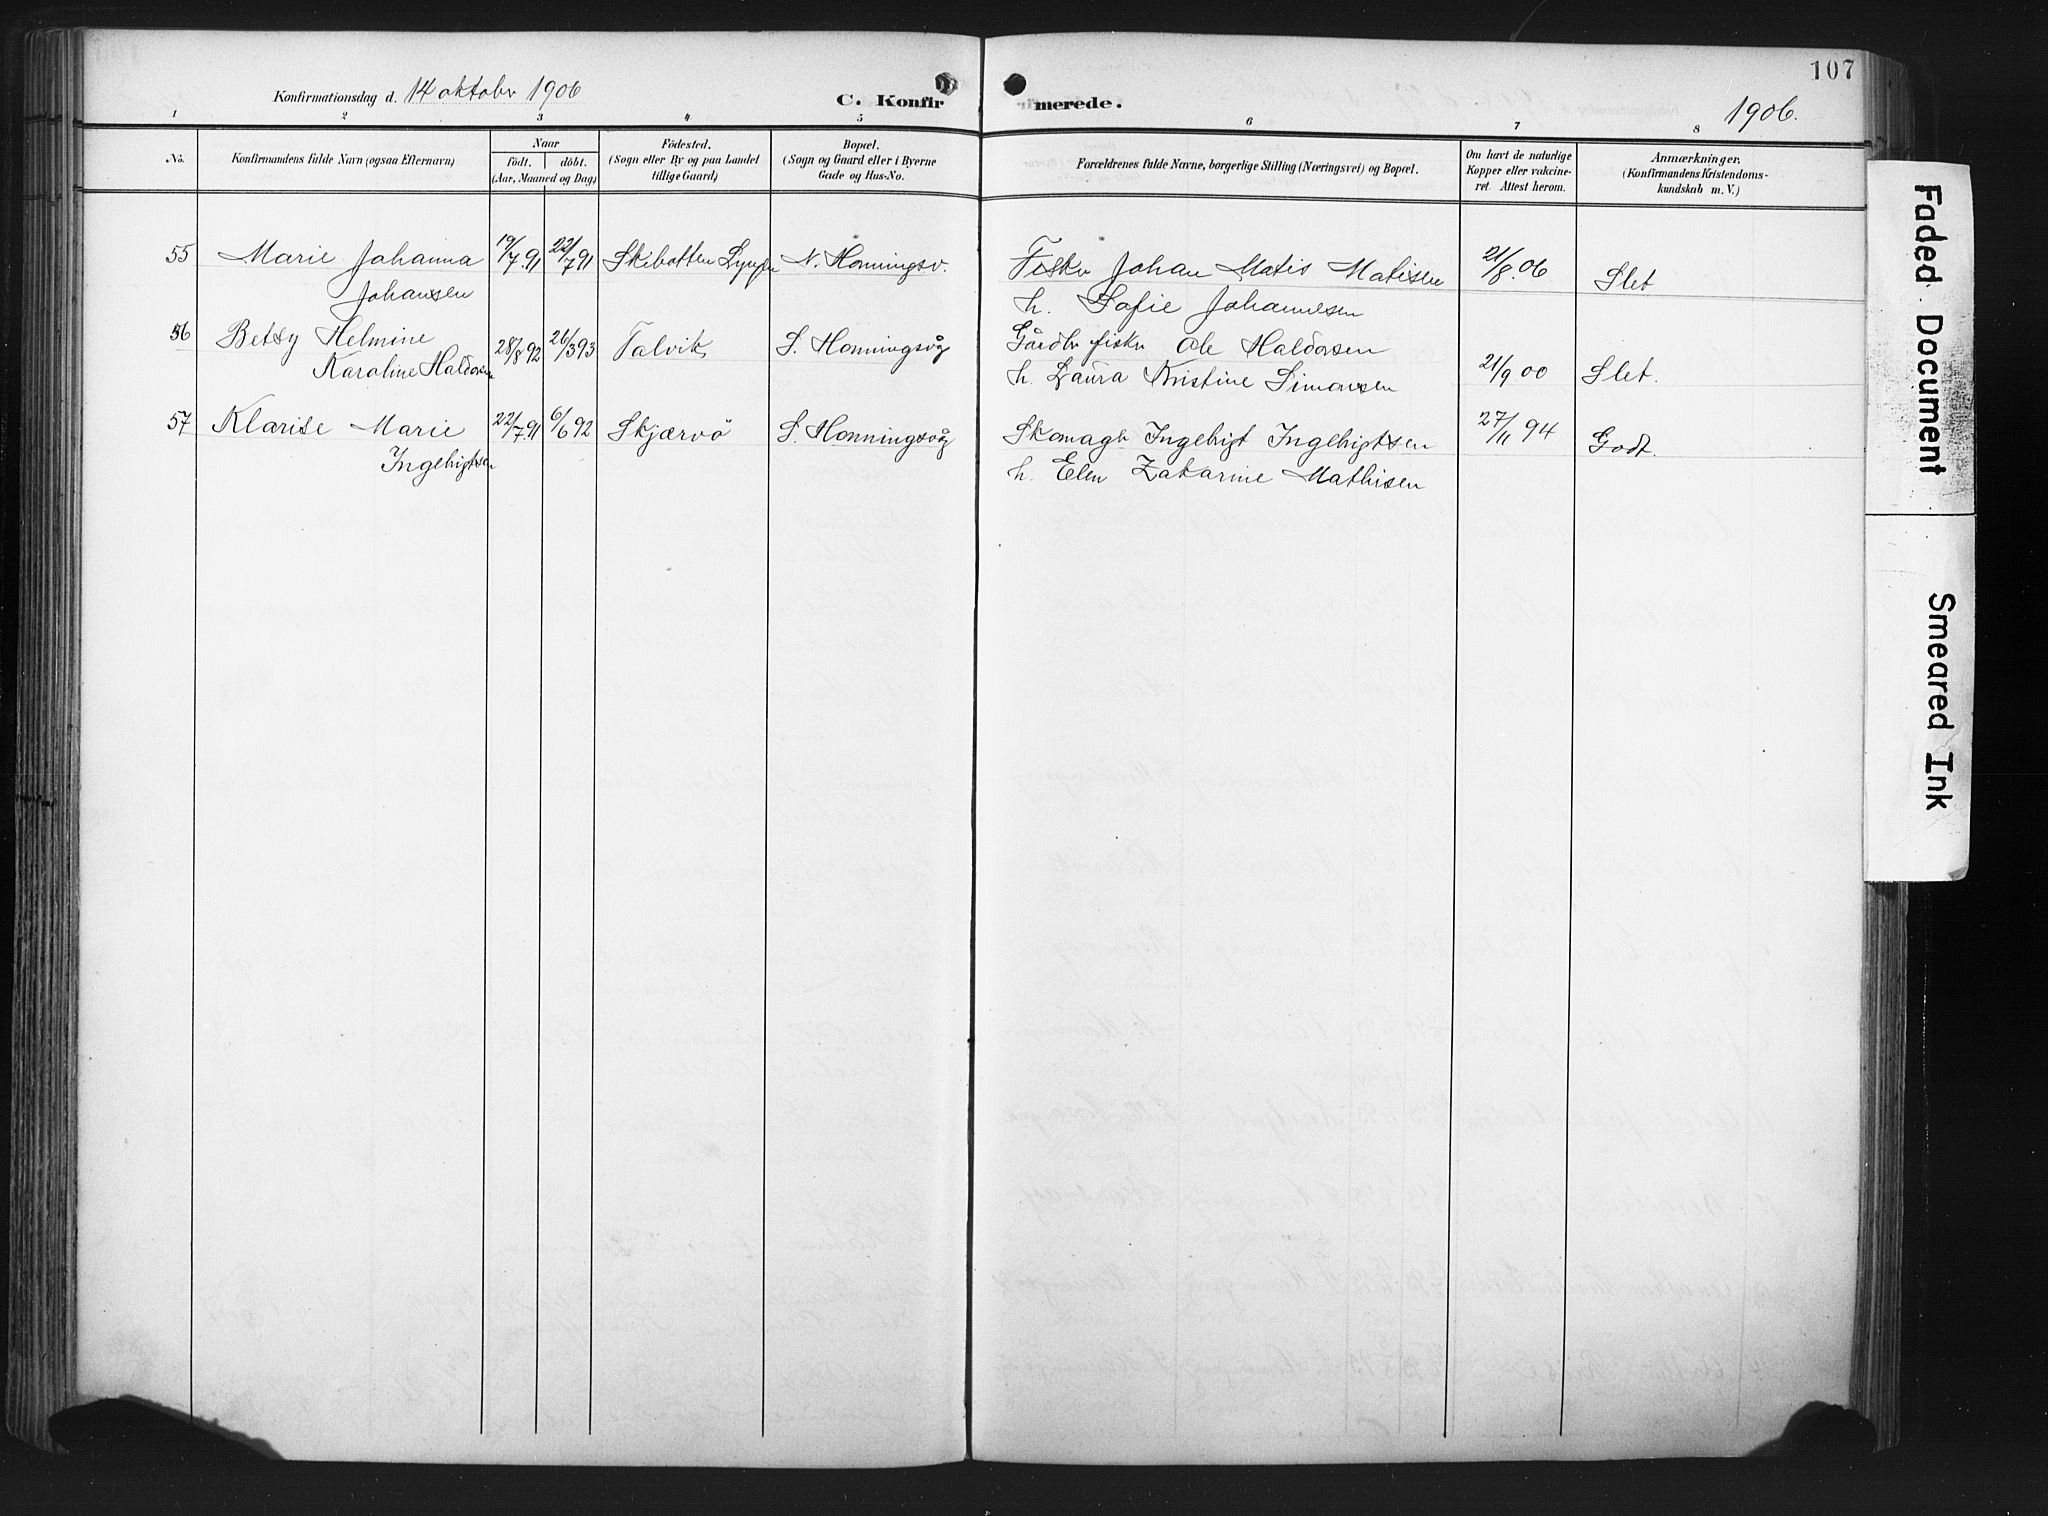 107
Konfirmationsdag d. 14 oktober 1906
C. Konfirmerede.
1906.
1 2 3 4 5 6 7 8
No.
Konfirmandens fulde Navn (ogsaa Efternavn)
Naar
födt. döbt.
(Aar, Maaned og Dag)
Födested.
(Sogn eller By og paa Landet
tillige Gaard)
Bopæl.
(Sogn og Gaard eller i Byerne
Gade og Hus-No.
Forældrenes fulde Navne, borgerlige Stilling (Næringsvei) og Bopæl.
Om havt de naturlige
Kopper eller vakcine-
ret. Attest herom.
Anmærkninger.
(Konfirmandens Kristendoms-
kundskab m. V.)
55 Marie Johanna 19/7.91 22/7 91 Skibotten Lyngen N. Honningsv. Fisker Johan Matis Matisen 21/8.06 Slet
Johansen h. Sofie Johannesen
56 Betsy Helmine 28/8 92 26/3 93 Talvik S. Honningsvåg Gårdbr fisker Ole Haldorsen
Karoline Haldorsen h. Laura Kristine Simonsen 21/9 00 Slet.
57 Klarise Marie 22/7.91 6/6 92 Skjærvö S. Honningsvåg Skomagr Ingebrigt Ingebrigtsen 27/11 94 Godt.
Ingebrigtsen h. Elen Zakarine Mathisen
Faded Document
Smeared Ink